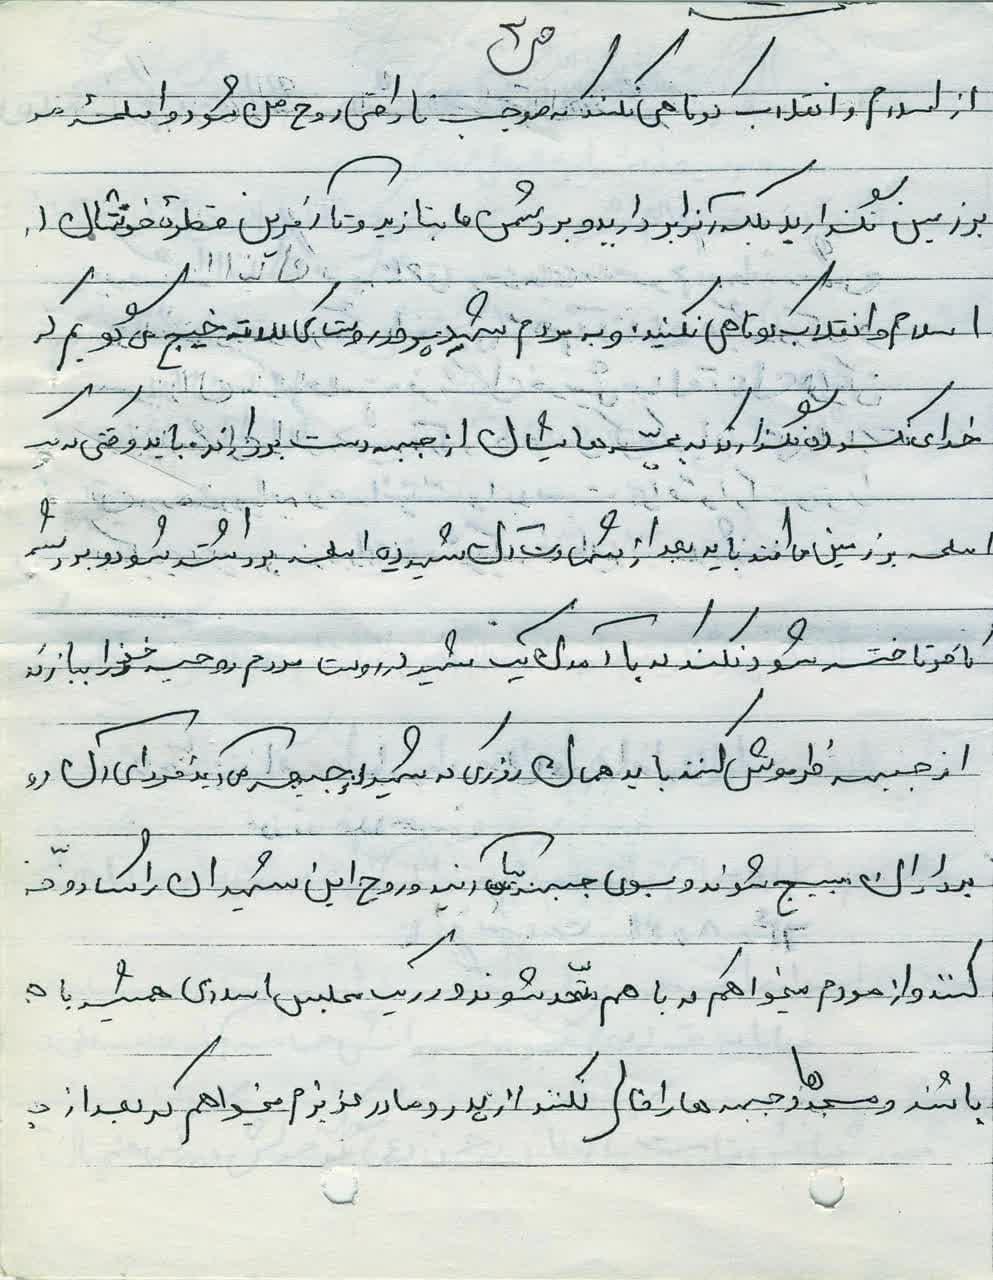 ص ۳
از اسلام و انقلاب کوتاهی نکنند که موجب ناراحتی روح من شود و اسلحه
بر زمین نگذارید بلکه آنرا بردارید و بر دشمن ها بتازید و تا آخرین قطرهٔ خونتان از
اسلام و انقلاب کوتاهی نکنید و به مردم شهید پرور روستای کلاته خیج می گویم که
خدای نکرده نگذارند که بچّه هایشان از جبهه دست بردارند باید وقتی که یک
اسلحه بر زمین ماند باید بعد از شهادت آن شهید اسلحه برداشته شود و بر دشمن
تاخته شود نکند که با آمدن یک شهید در روستا مردم روحیه خود را ببازند
از جبهه فراموش کنند باید همان روزی که شهید از جبهه می آید فردای آن روز
بسیج شوند و بسوی جبهه بیایند و روح این شهیدان را شاد
کنند و از مردم میخواهم که با هم متّحد شوند و در یک مجلس اسلامی همیشه با هم
باشند و مسجدها و جبهه ها را خالی نکنند از پدر و مادر عزیزم میخواهم که بعد از